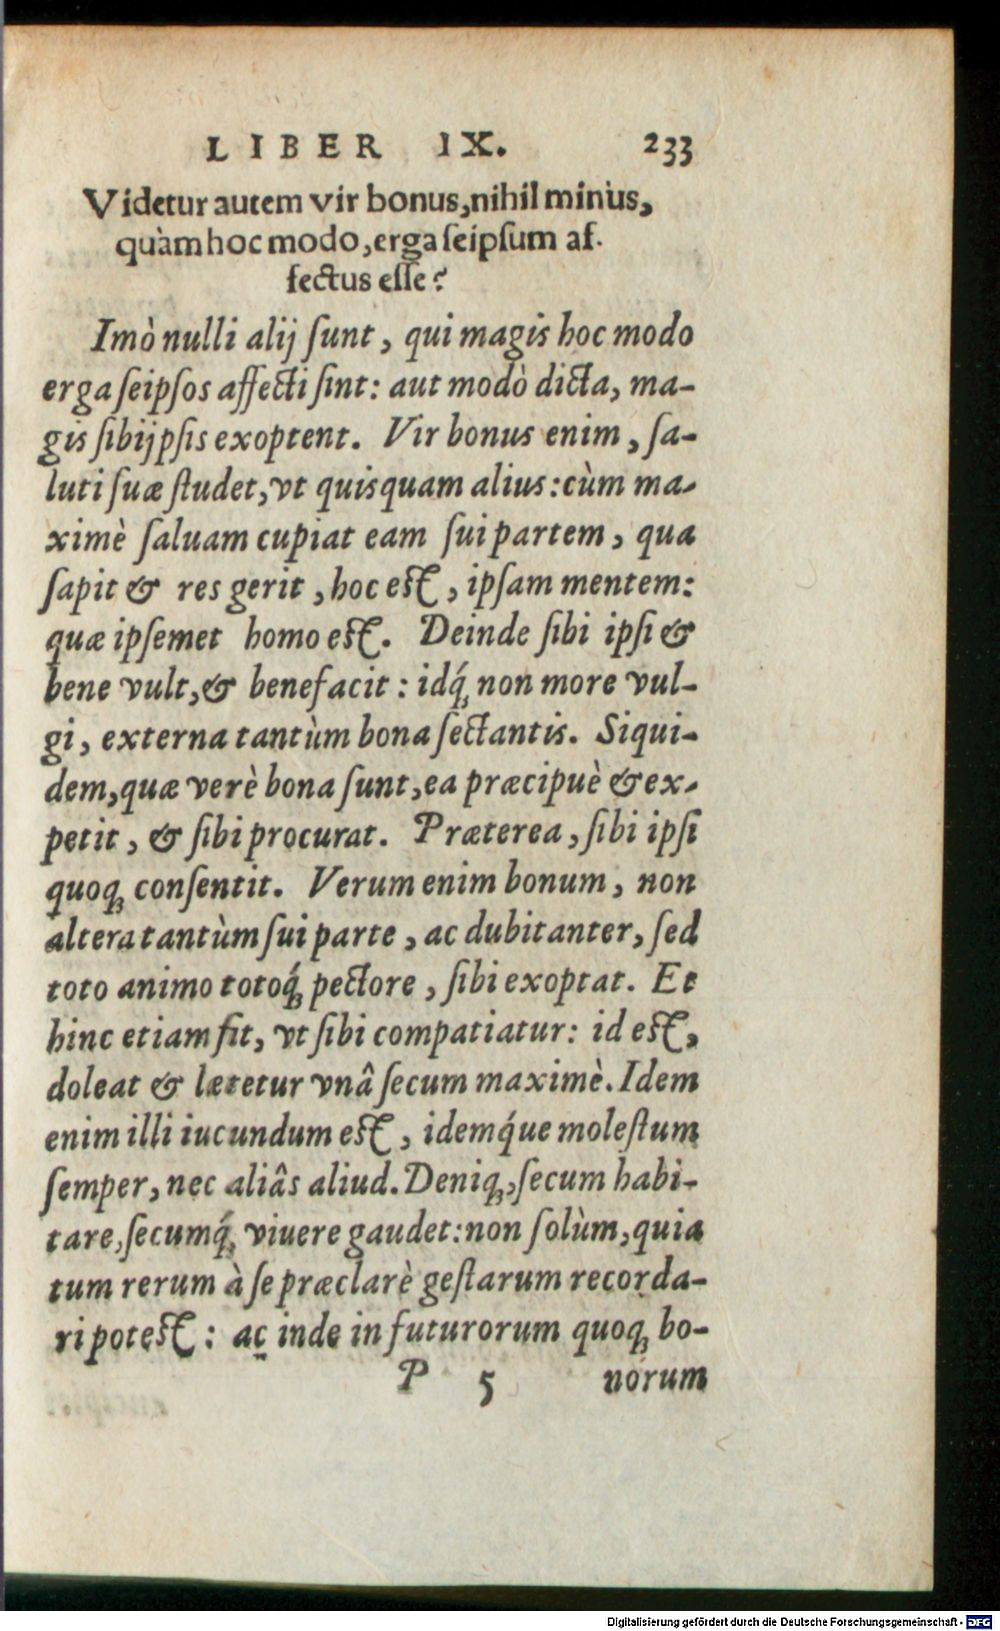 LIBER IX. 233
Videtur autem vir bonus, nihil minùs,
quàm hoc modo, erga ſeipſum af-
fectus eſſe?
Imò nulli alij ſunt, qui magis hoc modo
erga ſeipſos affecti ſint: aut modò dicta, ma-
gis ſibijpſis exoptent. Vir bonus enim, ſa-
luti ſuæ ſtudet, vt quisquam alius: cùm ma-
ximè ſaluam cupiat eam ſui partem, qua
ſapit & res gerit, hoc eſt, ipſam mentem:
quæ ipſemet homo eſt. Deinde ſibi ipſi &
bene vult, & benefacit: idq́; non more vul-
gi, externa tantùm bona ſectantis. Siqui-
dem, quæ verè bona ſunt, ea præcipuè & ex-
petit, & ſibi procurat. Præterea, ſibi ipſi
quoq; conſentit. Verum enim bonum, non
altera tantùm ſui parte, ac dubitanter, ſed
toto animo totoq́; pectore, ſibi exoptat. Et
hinc etiam fit, vt ſibi compatiatur: id eſt,
doleat & lætetur vnâ ſecum maximè. Idem
enim illi iucundum eſt, idemq́ue moleſtum
ſemper, nec aliâs aliud. Deniq;, ſecum habi-
tare, ſecumq́; viuere gaudet: non ſolùm, quia
tum rerum à ſe præclarè geſtarum recorda-
ri poteſt: ac inde in futurorum quoq; bo-
P 5 norum
Digitalisierung gefördert durch die Deutsche Forschungsgemeinschaft - DFG